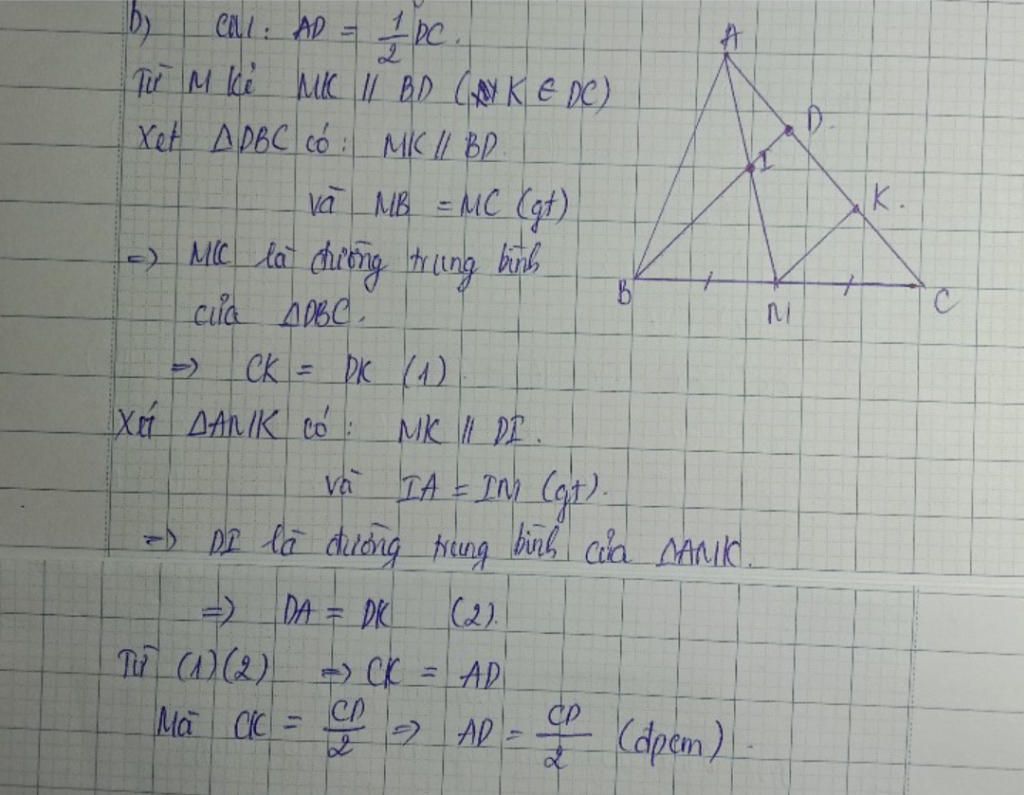 b) CM: AD = 1/2 DC.
Từ M kẻ MK // BD (K ∈ DC)
Xét ΔDBC có: MK // BD.
và MB = MC (gt)
=> MK là đường trung bình
của ΔDBC.
=> CK = DK (1)
Xét ΔAMK có: MK // DI.
và IA = IM (gt).
=> DI là đường trung bình của ΔAMK.
=> DA = DK (2).
Từ (1)(2) => CK = AD
Mà CK = CD/2 => AD = CD/2 (đpcm).
A
D.
I
K.
B
M
C